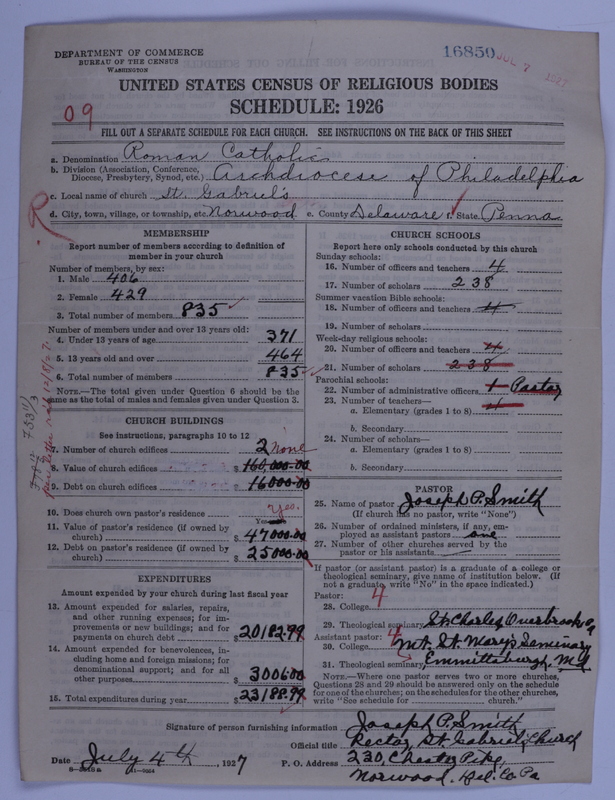 DEPARTMENT OF COMMERCE
BUREAU OF THE CENSUS
WASHINGTON
16850
JUL 7
UNITED STATES CENSUS OF RELIGIOUS BODIES
SCHEDULE: 1926
09
FILL OUT A SEPARATE SCHEDULE FOR EACH CHURCH. SEE INSTRUCTIONS ON THE BACK OF THIS SHEET
a. Denomination Roman Catholic
b. Division (Association, Conference, Diocese, Presbytery, Synod, etc.) Archdiocese of Philadelphia
c. Local name of church St. Gabriel's
R
d. City, town, village, or township, etc. Norwood e. County Delaware f. State Penna
MEMBERSHIP
Report number of members according to definition of
member in your church
Number of members, by sex:
1. Male 406
2. Female 429
3. Total number of members 835
Number of members under and over 13 years old:
4. Under 13 years of age 371
5. 13 years old and over 464
6. Total number of members 835
NOTE.—The total given under Question 6 should be the
same as the total of males and females given under Question 3.
CHURCH BUILDINGS
See instructions, paragraphs 10 to 12
7. Number of church edifices 2 none
8. Value of church edifices $ 160,000.00
9. Debt on church edifices $ 16000.00
10. Does church own pastor's residence Yes.
11. Value of pastor's residence (if owned by
church) $ 47000.00
12. Debt on pastor's residence (if owned by
church) $ 25000.00
EXPENDITURES
Amount expended by your church during last fiscal year
13. Amount expended for salaries, repairs,
and other running expenses; for im-
provements or new buildings; and for
payments on church debt $ 20182.99
14. Amount expended for benevolences, in-
cluding home and foreign missions; for
denominational support; and for all
other purposes $ 3006.00
15. Total expenditures during year $ 23188.99
CHURCH SCHOOLS
Report here only schools conducted by this church
Sunday schools:
16. Number of officers and teachers 4
17. Number of scholars 238
Summer vacation Bible schools:
18. Number of officers and teachers 4
19. Number of scholars
Week-day religious schools:
20. Number of officers and teachers 4
21. Number of scholars 238
Parochial schools:
22. Number of administrative officers 1 Pastor
23. Number of teachers—
a. Elementary (grades 1 to 8) 4
b. Secondary
24. Number of scholars—
a. Elementary (grades 1 to 8)
b. Secondary
PASTOR
25. Name of pastor Joseph P. Smith
(If church has no pastor, write "None")
26. Number of ordained ministers, if any, em-
ployed as assistant pastors one
27. Number of other churches served by the
pastor or his assistants
If pastor (or assistant pastor) is a graduate of a college or
theological seminary, give name of institution below. (If
not a graduate, write "No" in the space indicated.)
Pastor:
28. College 4
29. Theological seminary St. Charles Overbrook Pa
Assistant pastor: 4
30. College Mt. St. Mary's Seminary
31. Theological seminary Emmittsburgh, Md
NOTE.—Where one pastor serves two or more churches,
Questions 28 and 29 should be answered only on the schedule
for one of the churches; on the schedules for the other churches,
write "See schedule for church."
Signature of person furnishing information Joseph P. Smith
Official title Rector, St. Gabriel's Church
Date July 4th, 1927
P. O. Address 230, Chester Pike,
Norwood. Del. Co Pa